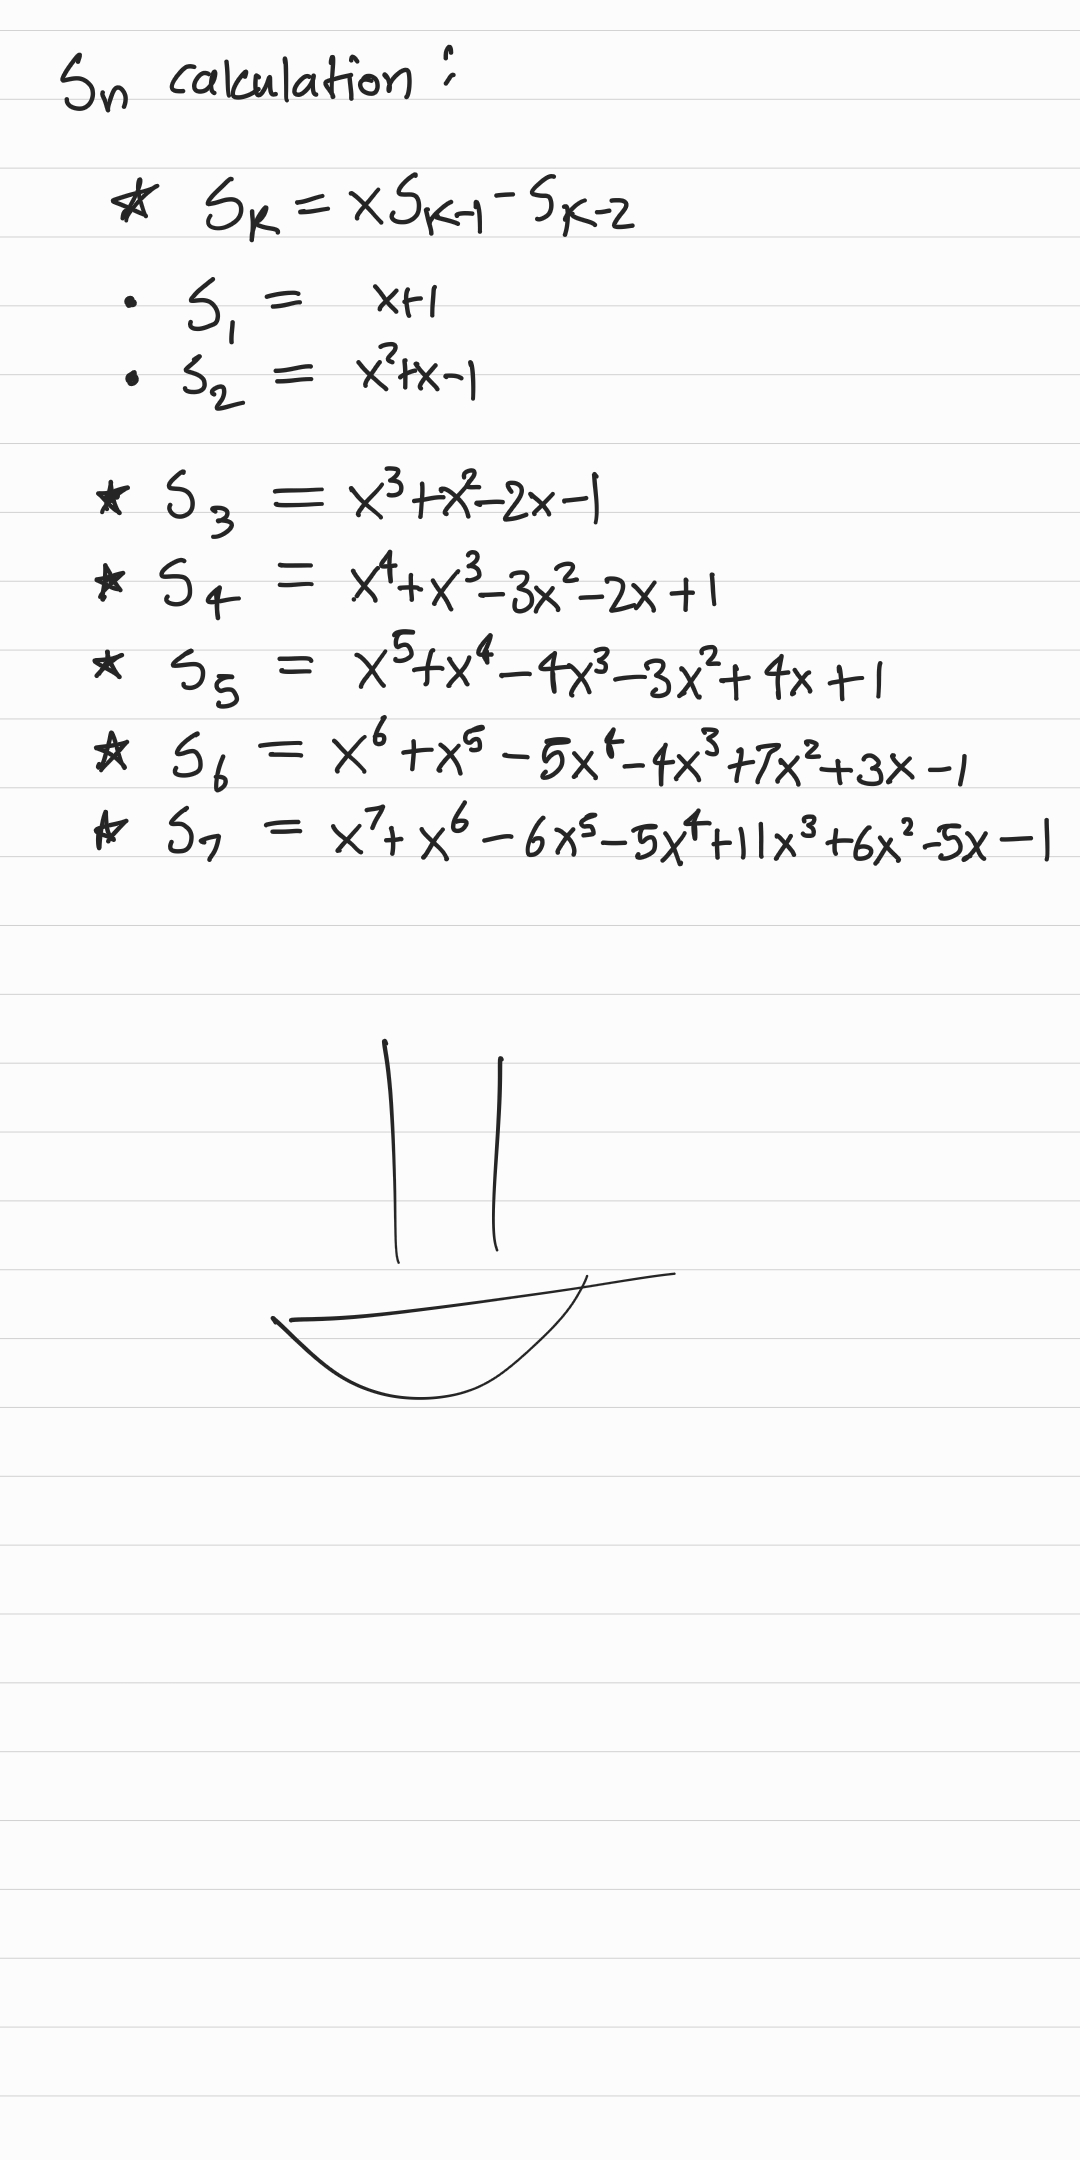 Sₙ calculation :
☆ Sₖ = xSₖ₋₁ - Sₖ₋₂
• S₁ = x+1
• S₂ = x²+x-1
★ S₃ = x³+x²-2x-1
★ S₄ = x⁴+x³-3x²-2x+1
★ S₅ = x⁵+x⁴-4x³-3x²+4x+1
☆ S₆ = x⁶+x⁵-5x⁴-4x³+7x²+3x-1
☆ S₇ = x⁷+x⁶-6x⁵-5x⁴+11x³+6x²-5x-1